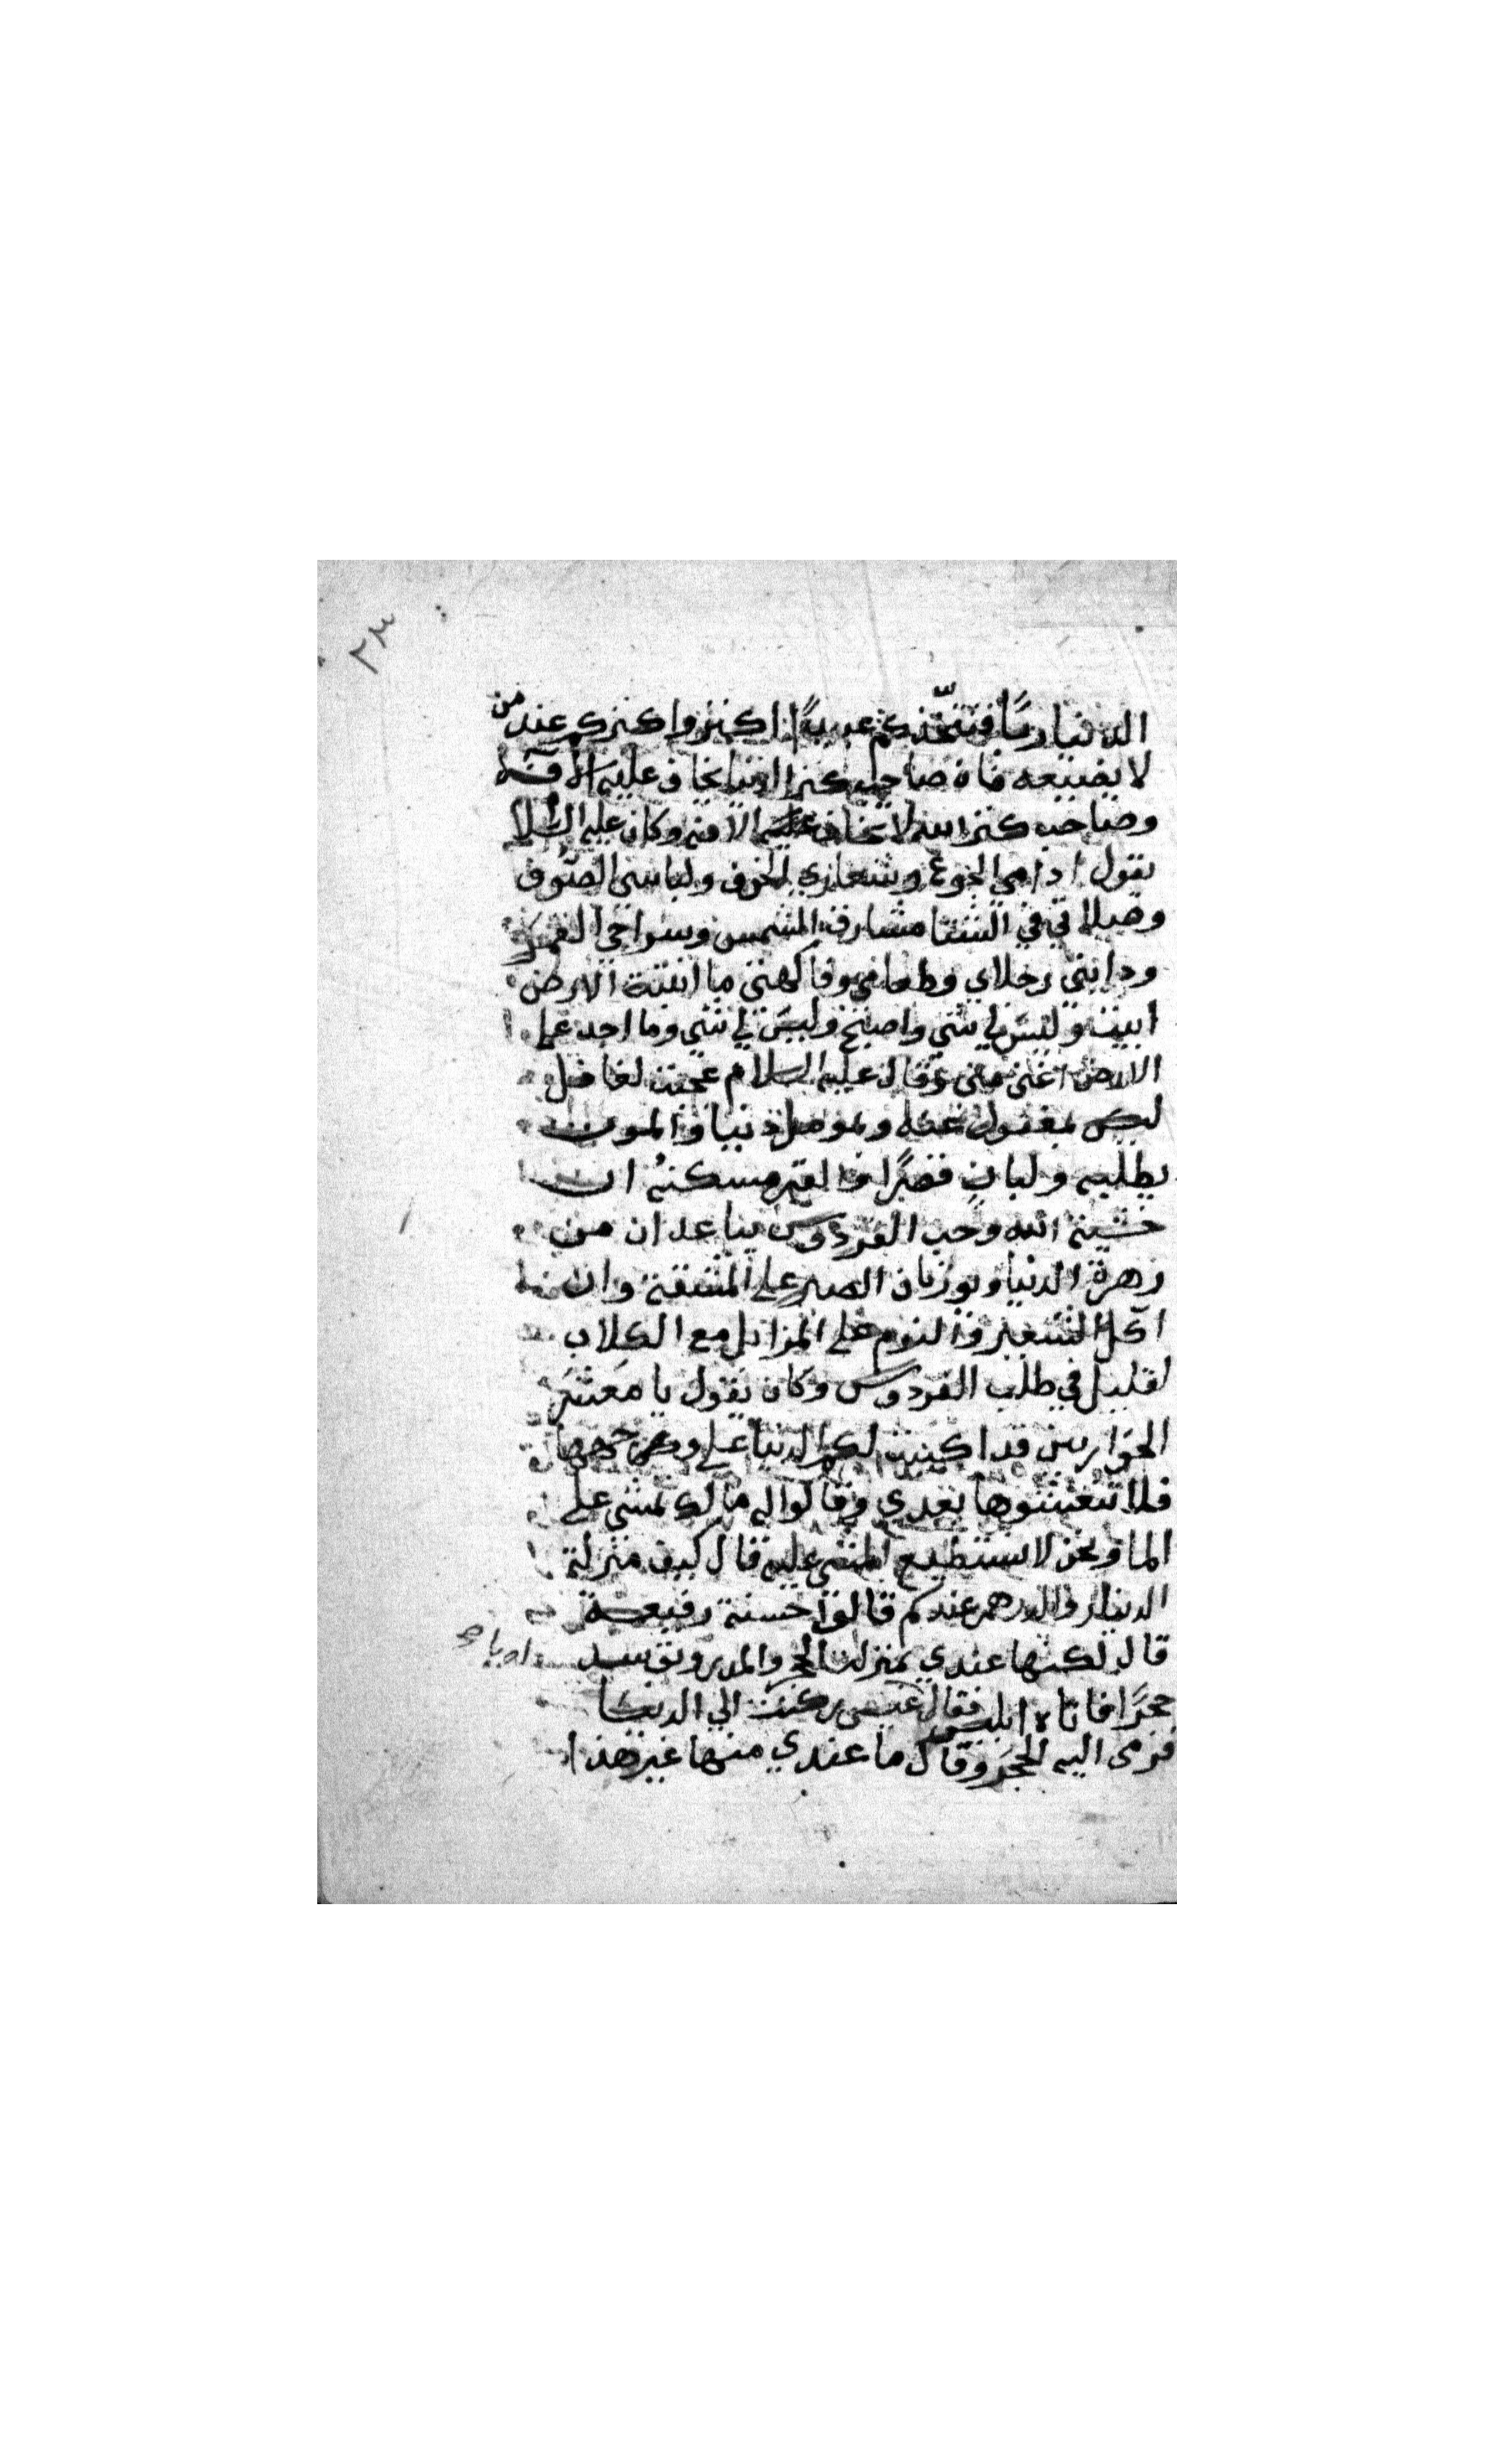 ٢٣
الدنيا ربًا فتتّخذكم عبيدًا اكنزوا كنزكم عند من
لا يضيعه فان صاحب كنز الدنيا يخاف عليه الآفة
وصاحب كنز الله لا يخاف عليه الآفة وكان عليه السلام
يقول ادامي الجوع وشعاري الخوف ولباسي الصوف
وصلاتي في الشتا مشارق الشمس وسراجي القمر
ودابتي رجلاي وطعامي وفاكهتي ما انبتة الارض
ابيت وليس لي شي واصبح وليس لي شي وما احد على
الارض اغنى مني وقال عليه السلام عجبت لغافل
ليس بمغفول عنه ومومل دنيا والموت
يطلبه ولبانٍ قصرًا والقبر مسكنهُ ان
خشية الله وحب الفردوس يباعدان من
زهرة الدنيا ويورثان الصبر على المشقة وان
اكل الشعير والنوم على المزابل مع الكلاب
لقليل في طلب الفردوس وكان يقول يا معشر
الحواريين قد اكببت لكم الدنيا على وجهها
فلا تنعشوها بعدي وقالوا له مالك تمشي على
الما ونحن لا نستطيع المشي عليه قال كيف منزلة
الدينار والدرهم عندكم قالوا حسنة رفيعة
قال لكنها عندي بمنزلة الحجر والمدر وتوسد
حجرًا فاتاه ابليس فقال عيسى ركنت الي الدنيا
فرمى اليه الحجر وقال ما عندي منها غير هذا